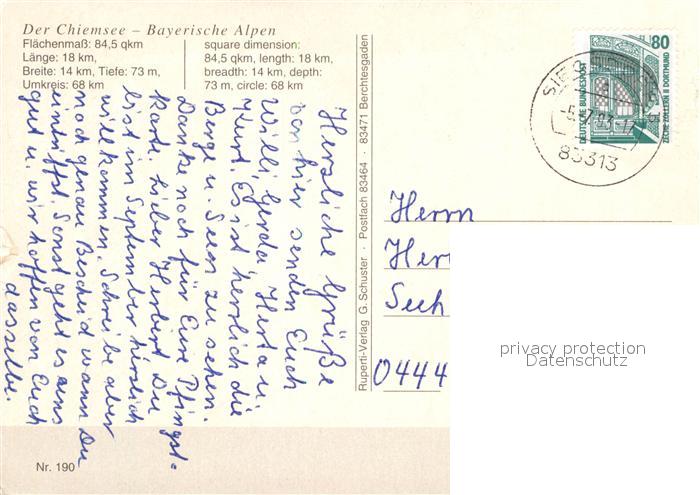 Der Chiemsee – Bayerische Alpen
Flächenmaß: 84,5 qkm
Länge: 18 km,
Breite: 14 km, Tiefe: 73 m,
Umkreis: 68 km
square dimension:
84,5 qkm, length: 18 km,
breadth: 14 km, depth:
73 m, circle: 68 km
Herzliche Grüße
von hier senden Euch
Willi, Gerda, Herta u.
Kurt. Es ist herrlich die
Berge u. Seen zu sehen.
Danke noch für Eure Pfingst-
karte. Lieber Herbert Du
bist im September herzlich
willkommen. Schreibe aber
noch genau Bescheid wann Du
eintriffst. Sonst geht es uns
gut u. wir hoffen von Euch
dasselbe.
Ruperti-Verlag G. Schuster · Postfach 83464 · 83471 Berchtesgaden
80
DEUTSCHE BUNDESPOST
ZECHE ZOLLERN II DORTMUND
83313
Herrn
Her
Seeh
0444
privacy protection
Datenschutz
Nr. 190